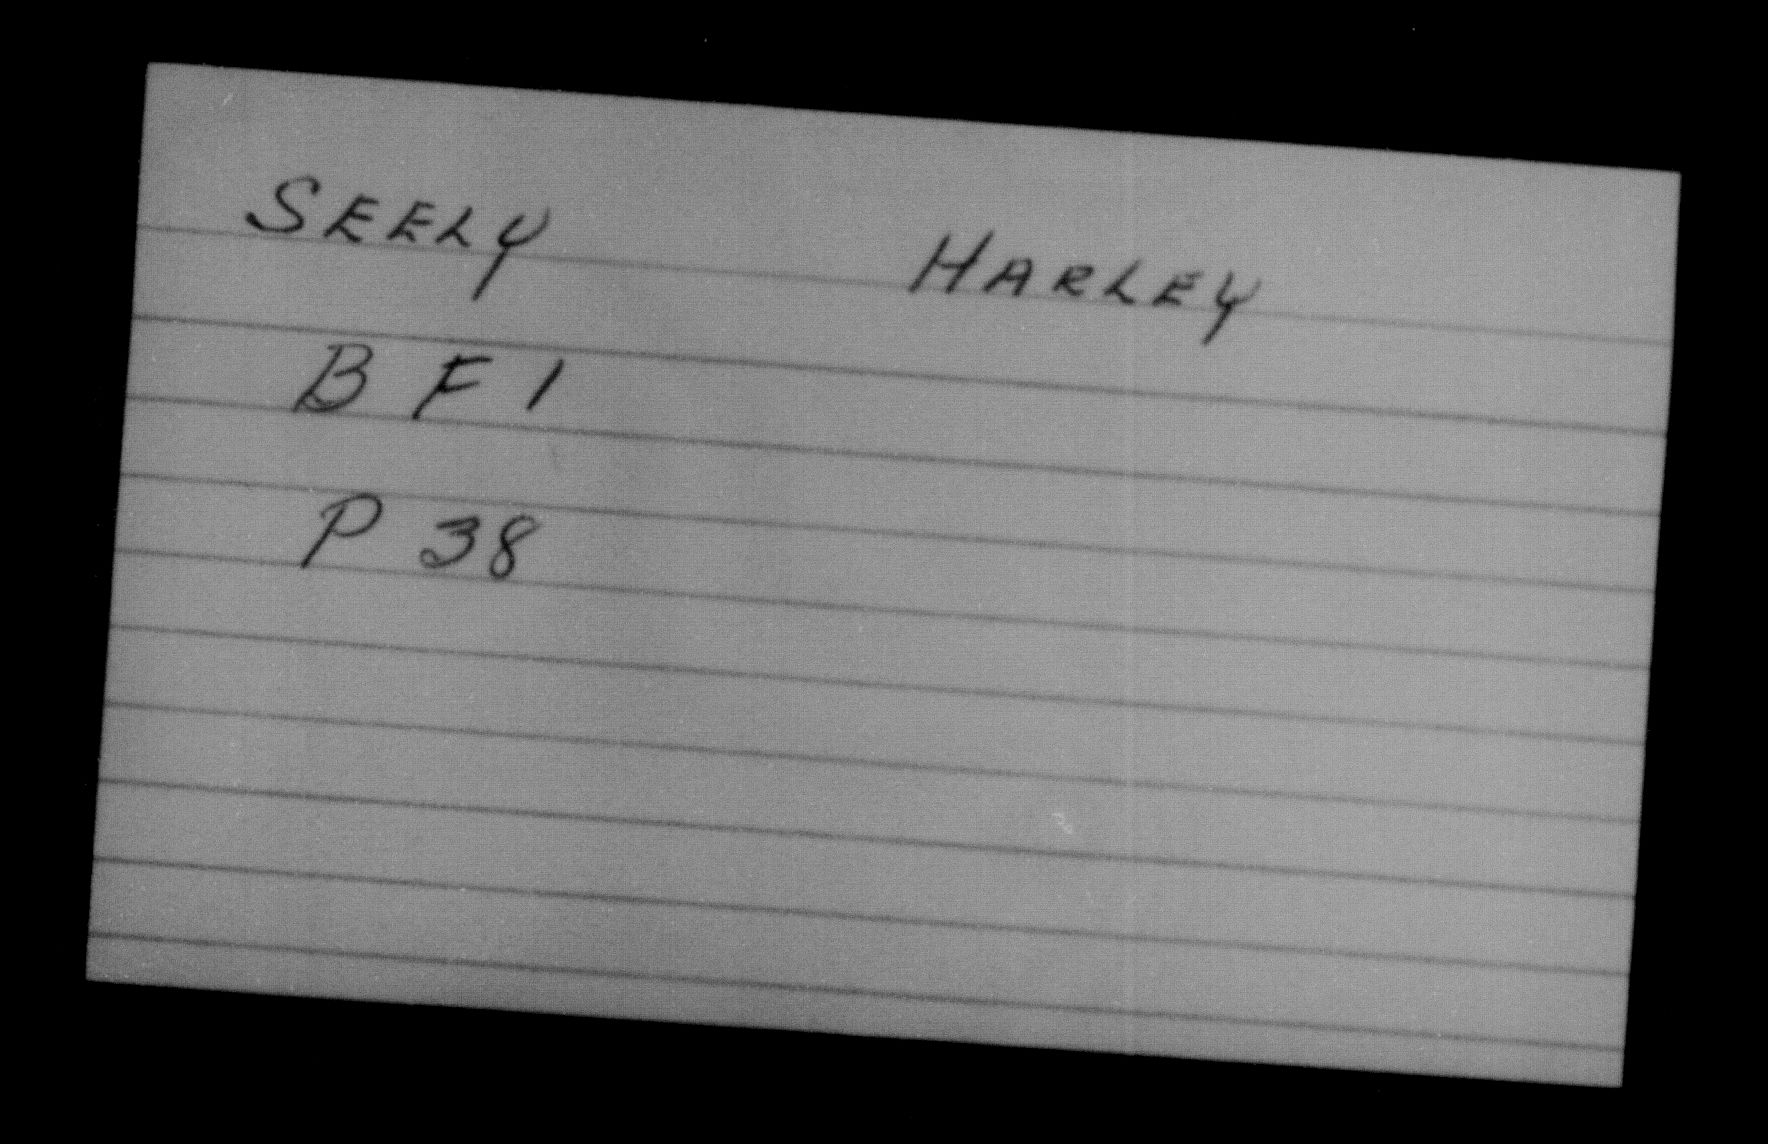 SEELY HARLEY
B F 1
P 38